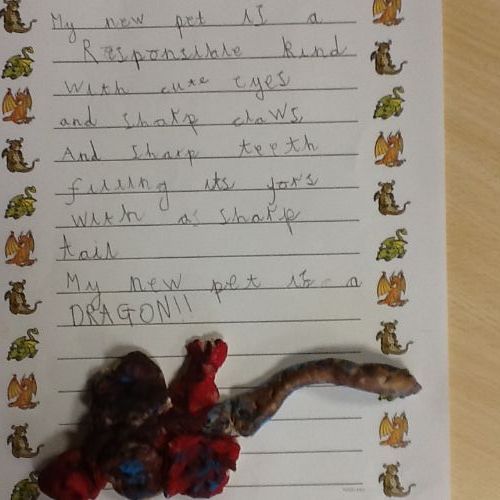 My new pet is a
Responsible kind
With cute eyes
and sharp claws
And sharp teeth
filling its jors
With a sharp
tail
My new pet is a
DRAGON!!